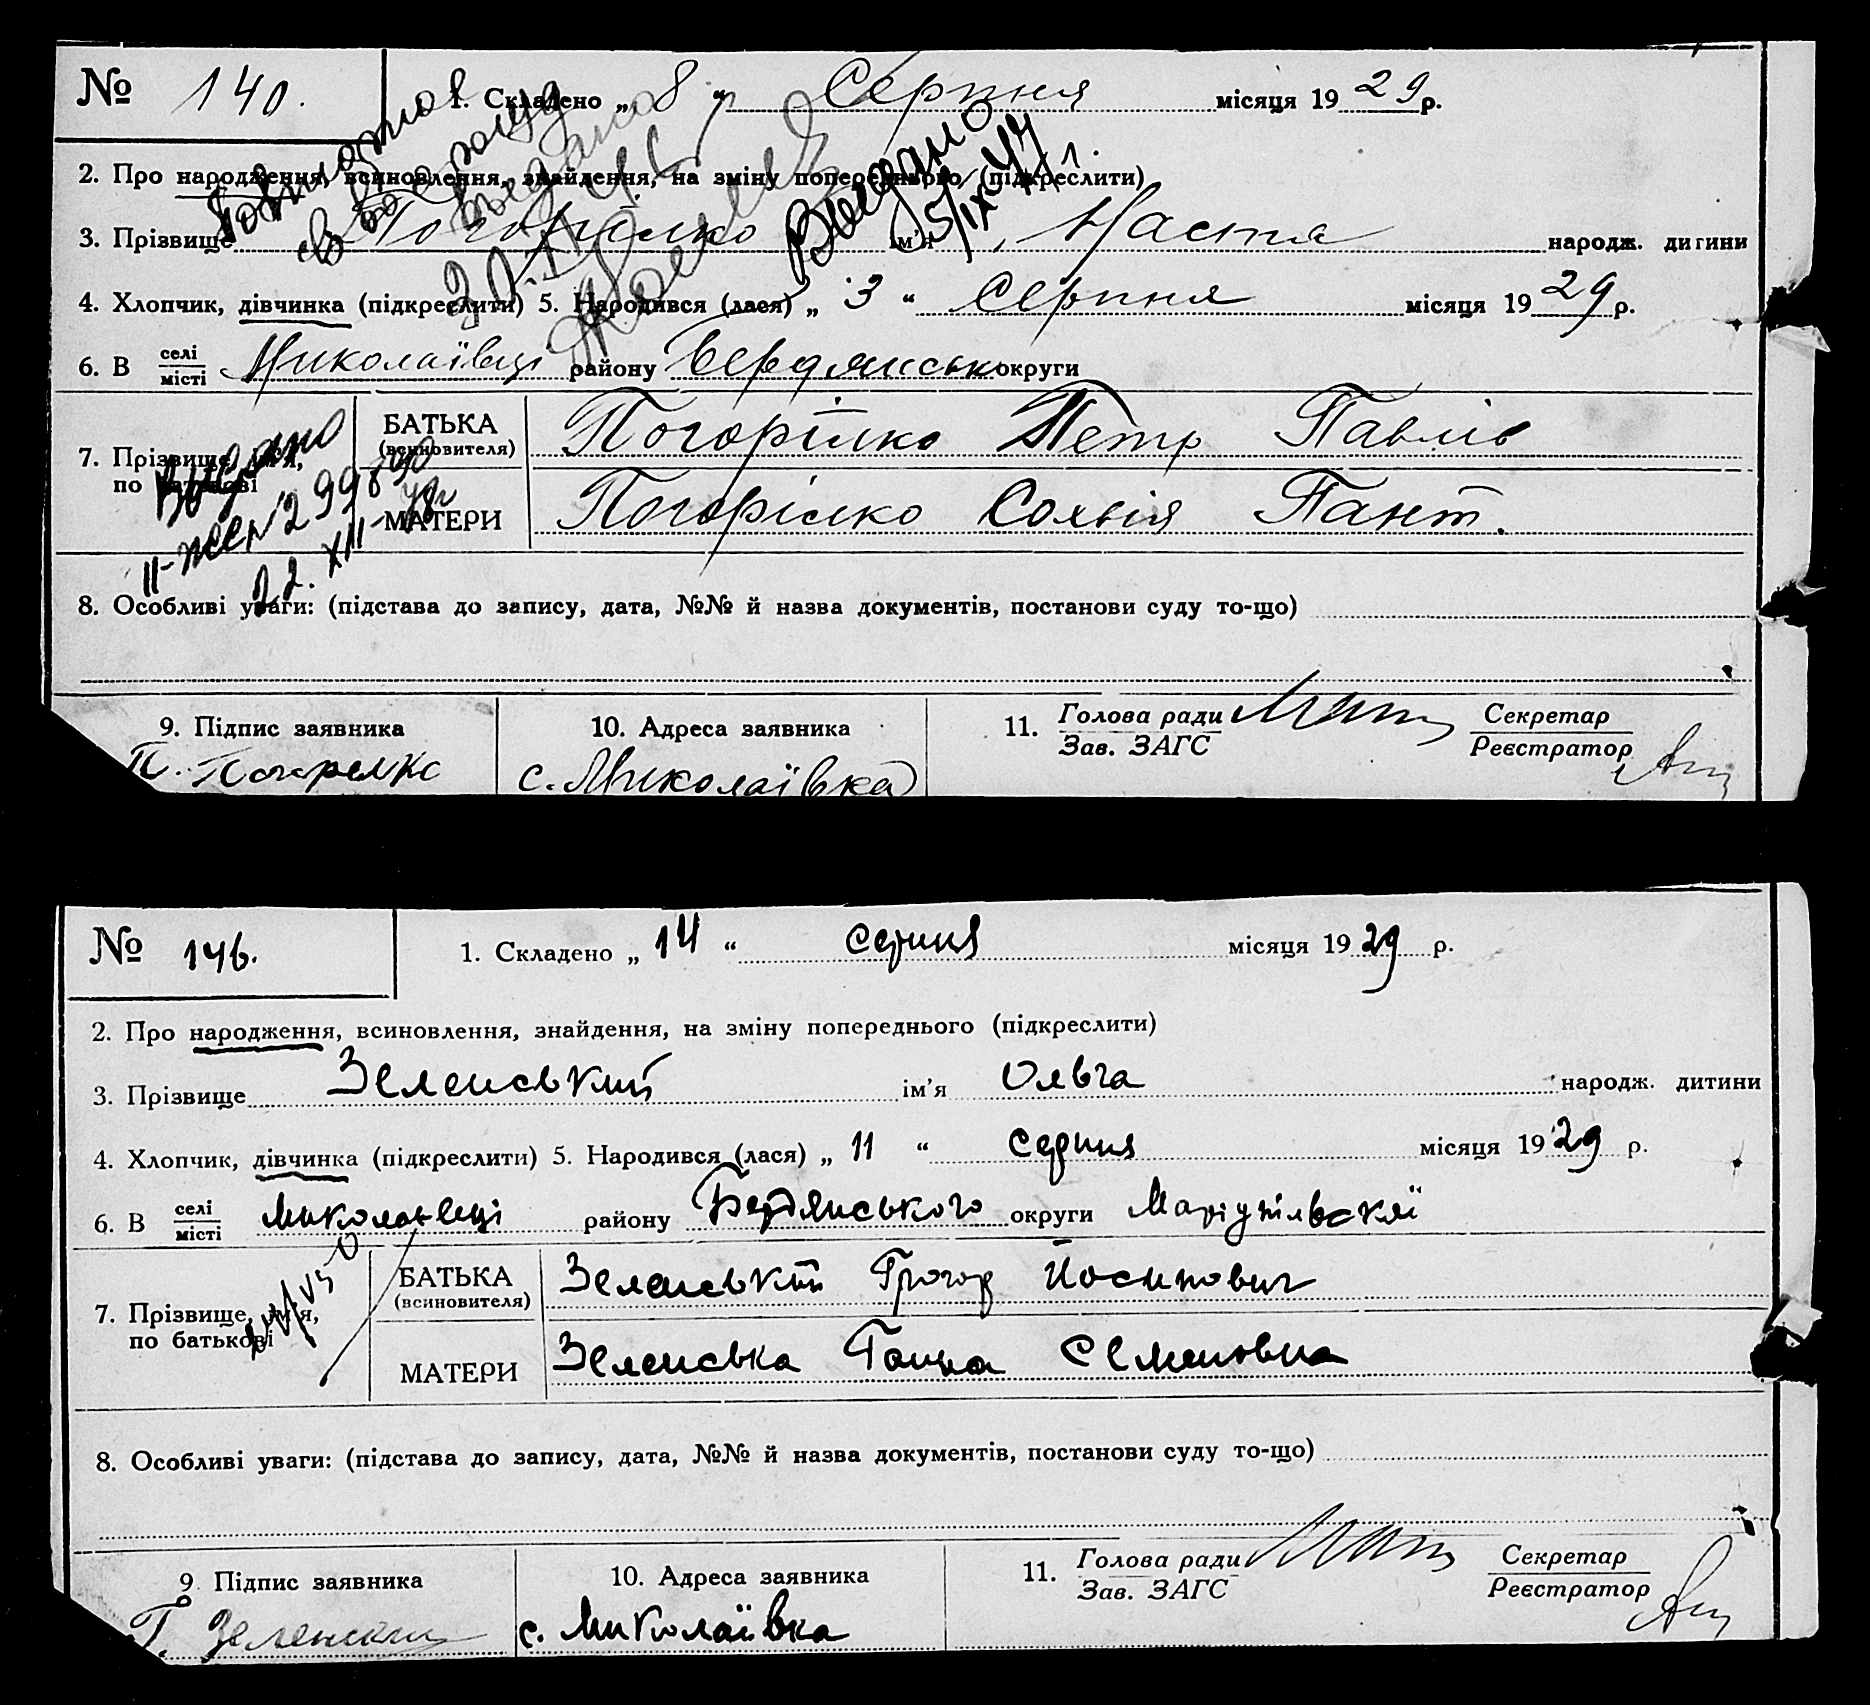 № 140. 1. Складено „ 8 " Серпня місяця 1929 р.
2. Про народження, всиновлення, знайдення, на зміну попереднього (підкреслити)
3. Прізвище Погорілко ім'я Настя народж. дитини
4. Хлопчик, дівчинка (підкреслити) 5. Народився (лася) „ 3 " Серпня місяця 1929 р.
6. В селі місті Миколаївці району Бердянськ округи
7. Прізвище, ім'я, по батькові
БАТЬКА (всиновителя) Погорілко Петр Павлів
МАТЕРИ Погорілко Солвія Пант.
Повторное
выдано
Выдано
5/IX-47
Выдано
22. XII
8. Особливі уваги: (підстава до запису, дата, №№ й назва документів, постанови суду то-що)
9. Підпис заявника 10. Адреса заявника 11. Голова ради Зав. ЗАГС Секретар Реєстратор
П. Погорелко с. Миколаївка
№ 146. 1. Складено „ 14 " серпня місяця 1929 р.
2. Про народження, всиновлення, знайдення, на зміну попереднього (підкреслити)
3. Прізвище Зеленський ім'я Ольга народж. дитини
4. Хлопчик, дівчинка (підкреслити) 5. Народився (лася) „ 11 " серпня місяця 1929 р.
6. В селі місті Миколаївці району Бердянського округи Маріупільскої
7. Прізвище, ім'я, по батькові
БАТЬКА (всиновителя) Зеленський Григор Йосипович
МАТЕРИ Зеленська Ганна Семеновна
8. Особливі уваги: (підстава до запису, дата, №№ й назва документів, постанови суду то-що)
9 Підпис заявника 10. Адреса заявника 11. Голова ради Зав. ЗАГС Секретар Реєстратор
Г. Зеленский с. Миколаївка